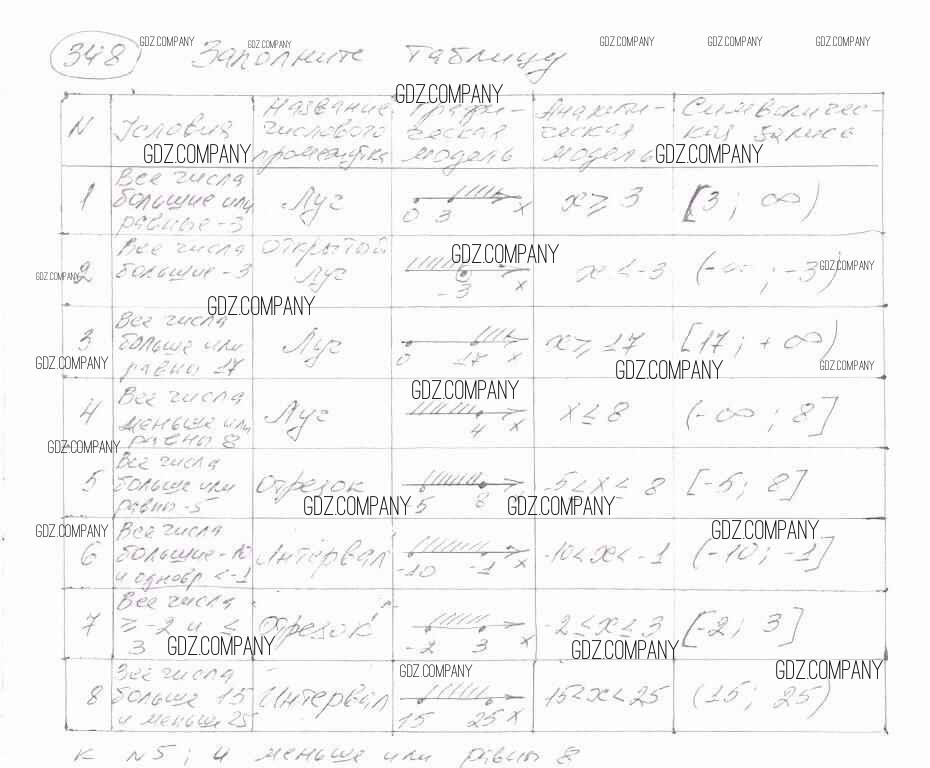 348 Заполните таблицу
GDZ.COMPANY GDZ.COMPANY GDZ.COMPANY GDZ.COMPANY GDZ.COMPANY
GDZ.COMPANY
N Условия Название числового промежутка Графическая модель Аналитическая модель Символическая запись
GDZ.COMPANY GDZ.COMPANY
1 Все числа большие или равные -3 Луч 0 3 x x ≥ 3 [3; ∞)
2 Все числа большие -3 Открытый Луч -3 x x < -3 (-∞; -3)
GDZ.COMPANY GDZ.COMPANY GDZ.COMPANY
GDZ.COMPANY
3 Все числа больше или равны 17 Луч 0 17 x x ≥ 17 [17; +∞)
GDZ.COMPANY GDZ.COMPANY GDZ.COMPANY
GDZ.COMPANY
4 Все числа меньше или равны 8 Луч 4 x x ≤ 8 (-∞; 8]
GDZ.COMPANY
5 Все числа больше или равны -5 Отрезок 5 8 x -5 ≤ x ≤ 8 [-5; 8]
GDZ.COMPANY GDZ.COMPANY
GDZ.COMPANY GDZ.COMPANY
6 Все числа большие -10 и одновр < -1 Интервал -10 -1 x -10 < x < -1 (-10; -1]
7 Все числа ≥ -2 и ≤ 3 Отрезок -2 3 x -2 ≤ x ≤ 3 [-2; 3]
GDZ.COMPANY GDZ.COMPANY
GDZ.COMPANY GDZ.COMPANY
8 Все числа больше 15 и меньше 25 Интервал 15 25 x 15 < x < 25 (15; 25)
к N5; и меньше или равны 8